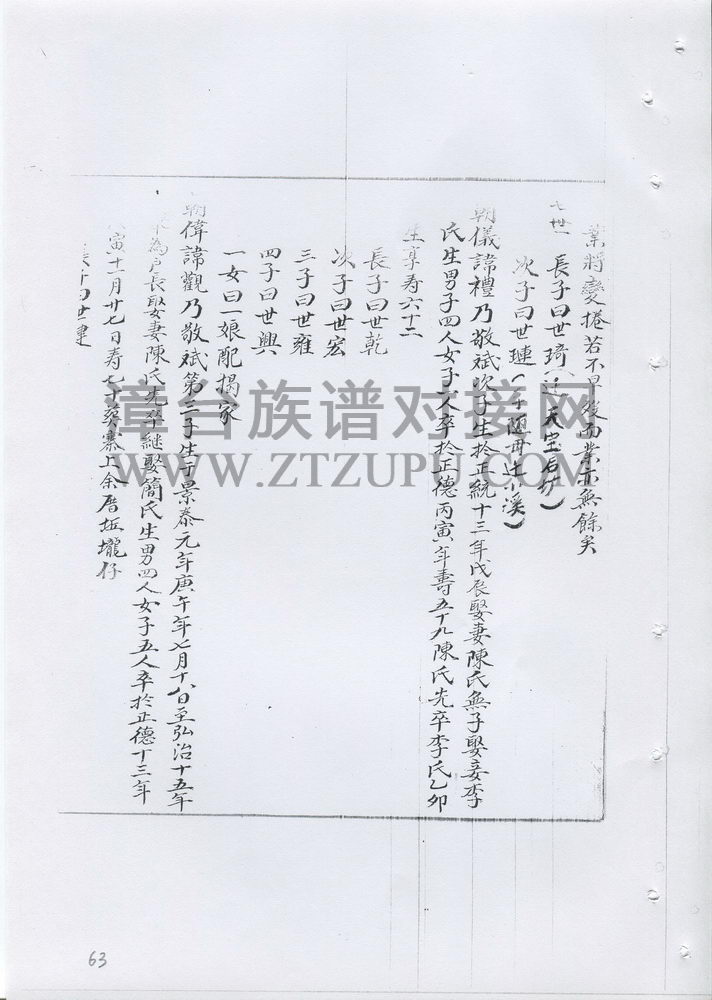 業將變捲若不早後而業亦無餘矣
七世 長子曰世琦 天宝后
次子曰世璉 子 溪）
朝儀諱禮乃敬斌次子生於正統十三年戊辰娶妻陳氏無子娶妾李
氏生男子四人女子 人卒於正德丙寅年壽五十九陳氏先卒李氏乙卯
生享寿六十二
長子曰世乾
次子曰世宏
三子曰世雍
四子曰世興
一女曰一娘配揚家
朝偉諱觀乃敬斌第三子生于景泰元年庚午年七月十八日至弘治十五年
為戶長娶妻陳氏先卒継娶簡氏生男四人女子五人卒於正德十三年
寅十一月廿七日寿七十葬寨上余厝坵壠仔
長子曰世建
漳台族谱对接网
WWW.ZTZUPU.COM
63